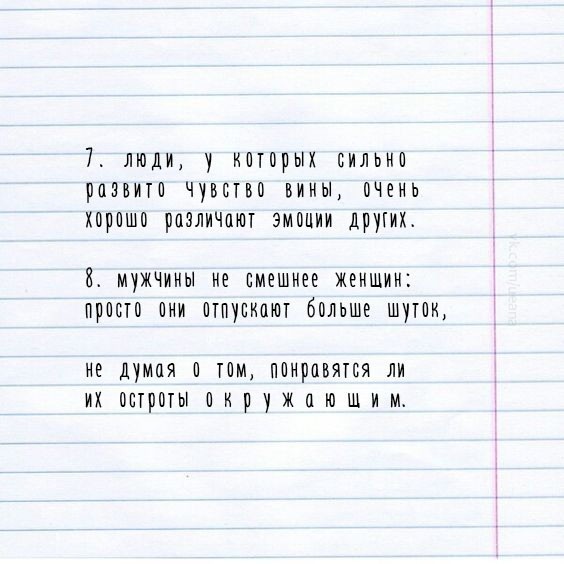 7. люди, у которых сильно
развито чувство вины, очень
хорошо различают эмоции других.
8. мужчины не смешнее женщин:
просто они отпускают больше шуток,
не думая о том, понравятся ли
их остроты окружающим.